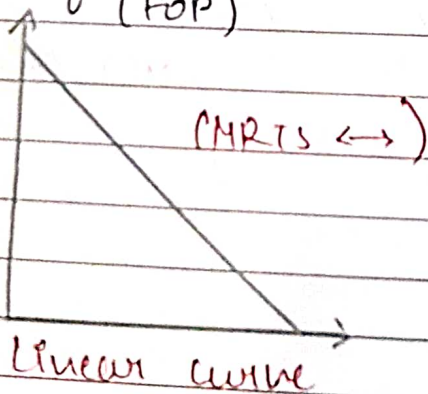 (FOP)
(MRTS ↔)
Linear curve